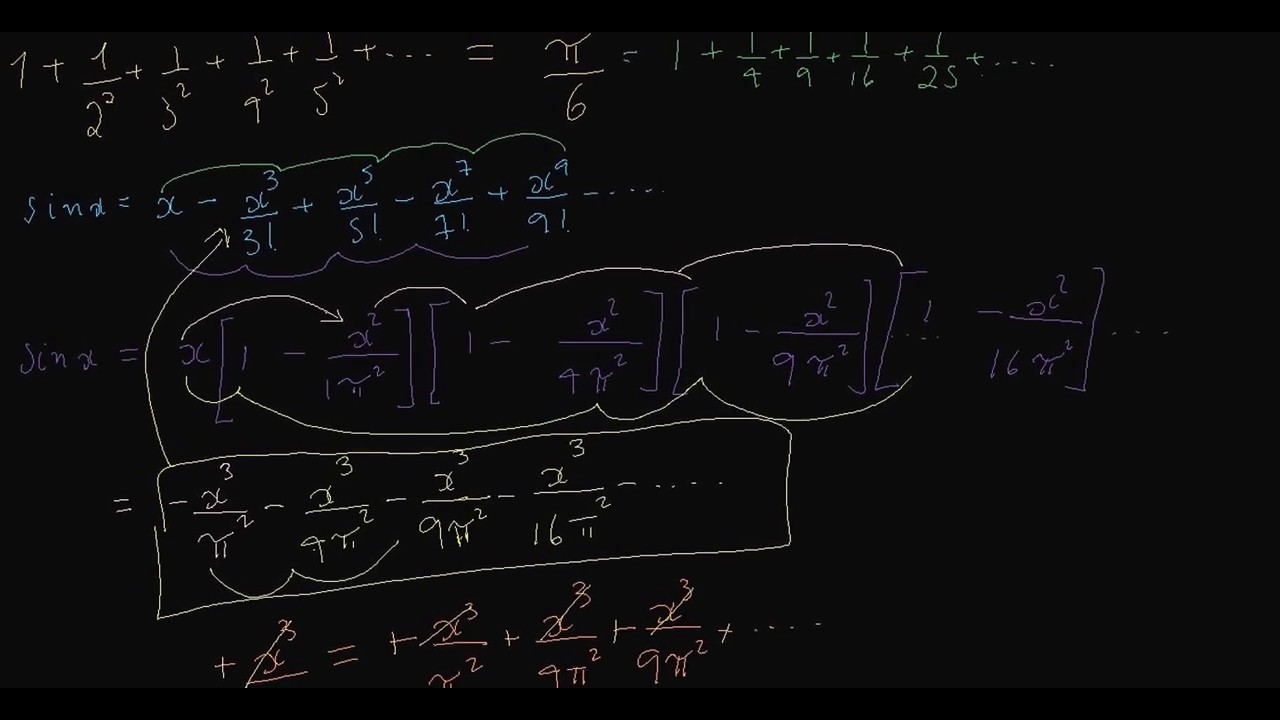 1 + 1/2² + 1/3² + 1/4² + 1/5² + .... = π/6 = 1 + 1/4 + 1/9 + 1/16 + 1/25 + .....
sin x = x - x³/3! + x⁵/5! - x⁷/7! + x⁹/9! - .....
sin x = x [1 - x²/1π²] [1 - x²/4π²] [1 - x²/9π²] [1 - x²/16π²] ....
= - x³/π² - x³/4π² - x³/9π² - x³/16π² - .....
+ x³ = + x³/π² + x³/4π² + x³/9π² + ....